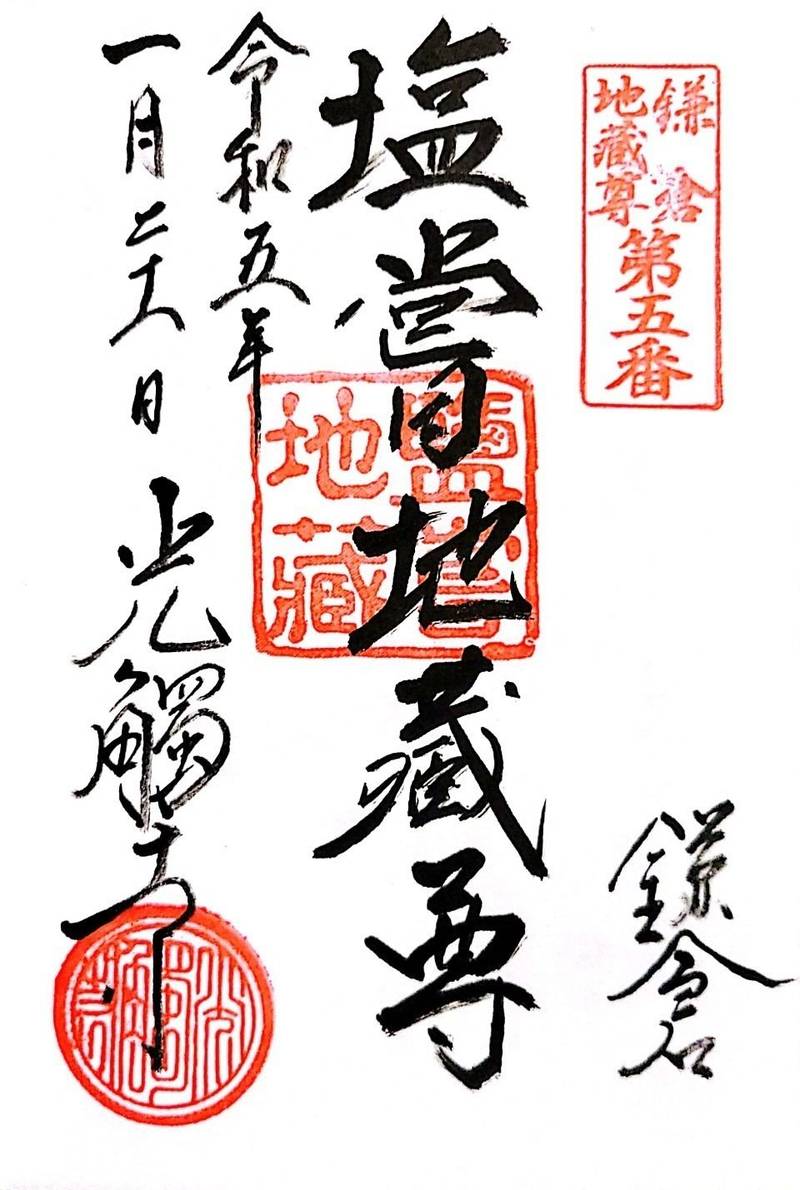 鎌倉
地藏尊
第五番
鎌倉
塩嘗地藏尊
鹽嘗
地藏
令和五年
一月二十八日
光觸寺